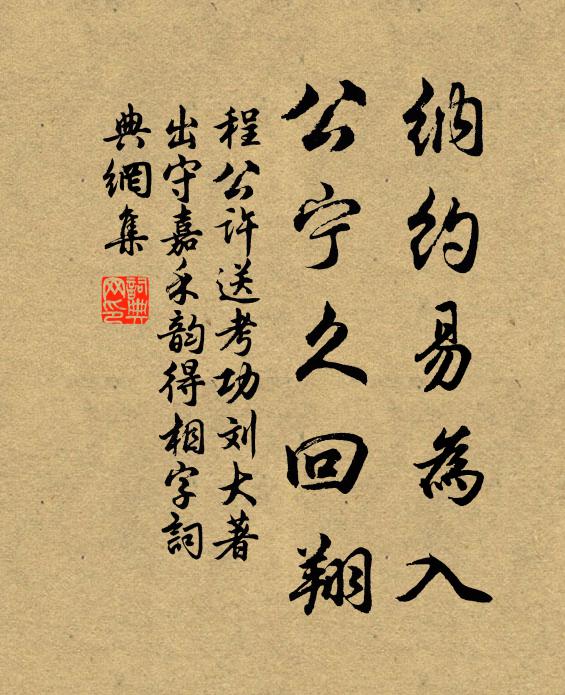 纳约易為入
公宁久回翔
程公许送考功刘大著
出守嘉禾韵得相字詞
典網集
詞典网印